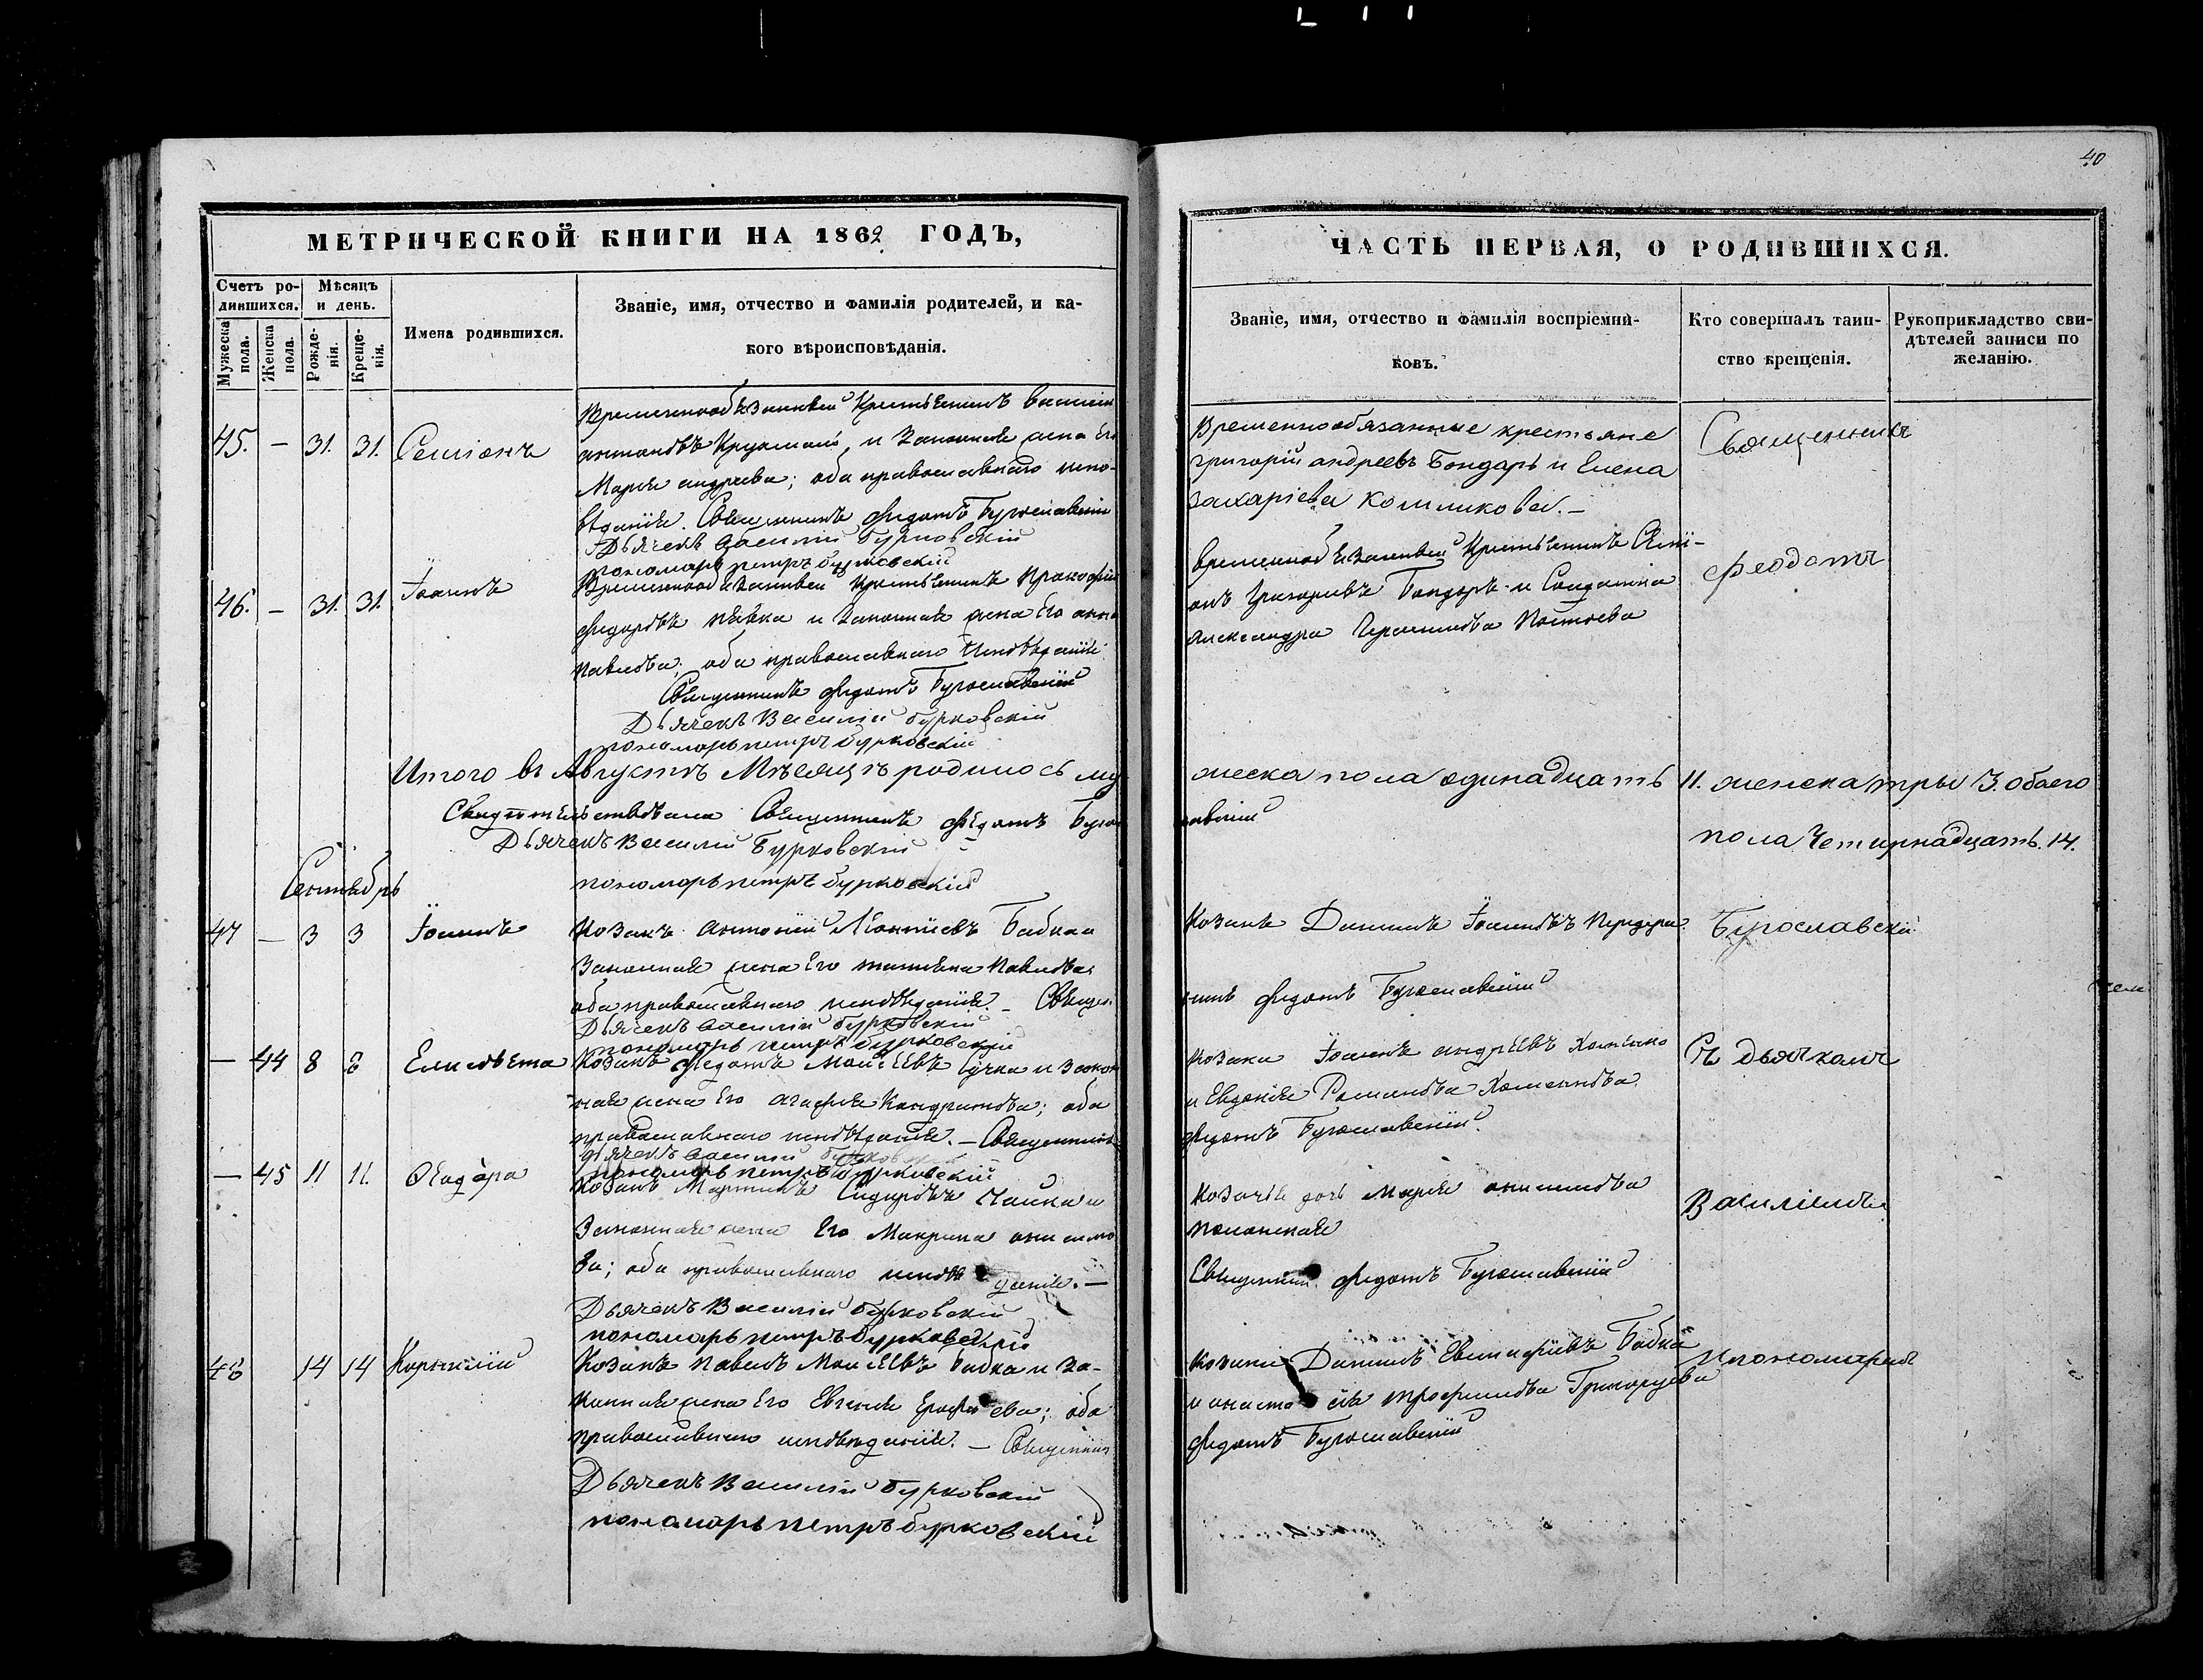 40
МЕТРИЧЕСКОЙ КНИГИ НА 1862 ГОДЪ,
Счетъ ро-
дившихся.
Мѣсяцъ
и день.
Мужеска
пола.
Женска
пола.
Рожде-
нія.
Креще-
нія.
Имена родившихся.
Званіе, имя, отчество и фамилія родителей, и ка-
кого вѣроисповѣданія.
45. — 31. 31. Симіонъ
Временнообязанный Крестьянинъ
антоновъ и законная жена Его
Марія андреева; оба православнаго испо-
вѣданія. Священникъ Федотъ Бугославскій
Дьячекъ Василій Бурковскій
пономарь петръ бурковскій
46. — 31. 31. Іоаннъ
Временнообязанный Крестьянинъ Прокофій
Федоровъ и законная жена Его анна
павлова; оба православнаго Исповѣданія
Священникъ Федотъ Бугославскій
Дьячекъ Василій бурковскій
пономарь петръ бурковскій
Итого въ Августѣ Мѣсяцѣ родилось му
Свидѣтельствовали Священникъ Федотъ Буго
Дьячекъ Василій Бурковскій
пономарь петръ бурковскій
Сентябрь
47 — 3 3 Іоаннъ
Козакъ антоній Бабка и
Законная жена Его татіяна Павлова
оба православнаго исповѣданія. — Священ
Дьячекъ Василій бурковскій
пономарь петръ бурковскій
— 44 8 8 Елисовета
Козакъ Федотъ Моисѣевъ и закон
ная жена Его Агафія Кондратова; оба
православнаго исповѣданія. — Священникъ
дьячекъ Василій бурковскій
пономарь петръ бурковскій
— 45 11 11. Феодора
Козакъ Мартинъ Сидоровъ Чайка и
Законная жена Его Макрина онисимо
ва; оба православнаго исповѣданія. —
Дьячекъ Василій бурковскій
пономарь петръ бурковскій
48 14 14 Корнилій
Козакъ павелъ Моисѣевъ бабка и за-
конная жена Его Евгенія; оба
православнаго исповѣданія. — Священник
Дьячекъ Василій бурковскій
пономарь петръ бурковскій
ЧАСТЬ ПЕРВАЯ, О РОДИВШИХСЯ.
Званіе, имя, отчество и фамилія воспріемни-
ковъ.
Кто совершалъ таин-
ство крещенія.
Рукоприкладство сви-
дѣтелей записи по
желанію.
Временнообязанные крестьяне
григорій андреевъ Бондарь и Елена
захаріева
Священникъ
Временнообязанный Крестьянинъ Симі-
онъ Григоріевъ Бондарь и Солдатка
александра
Феодотъ
жеска пола одинадцать 11. женска тры 3. обоего
пола Четирнадцать. 14.
славскій
Козакъ Даніилъ Іоанновъ
Бугославскій
никъ Федотъ Бугославскій
козаки Іоаннъ андрѣевъ
и Евдокія Романова
Федотъ Бугославскій
Съ дьячкомъ
Козачья дочь Марія онисимова
Василіемъ
Священникъ Федотъ Бугославскій
козаки Даніилъ Бабка
и анастасія трофимова
Федотъ Бугославскій
и пономаремъ